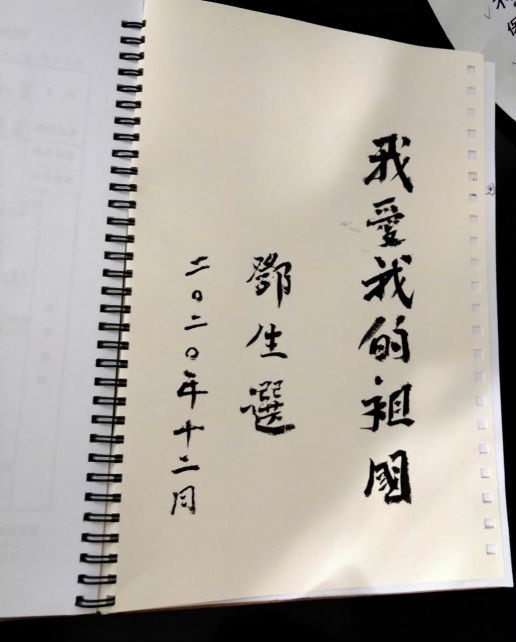 我愛我的祖國
鄧生選
二〇二〇年十二月